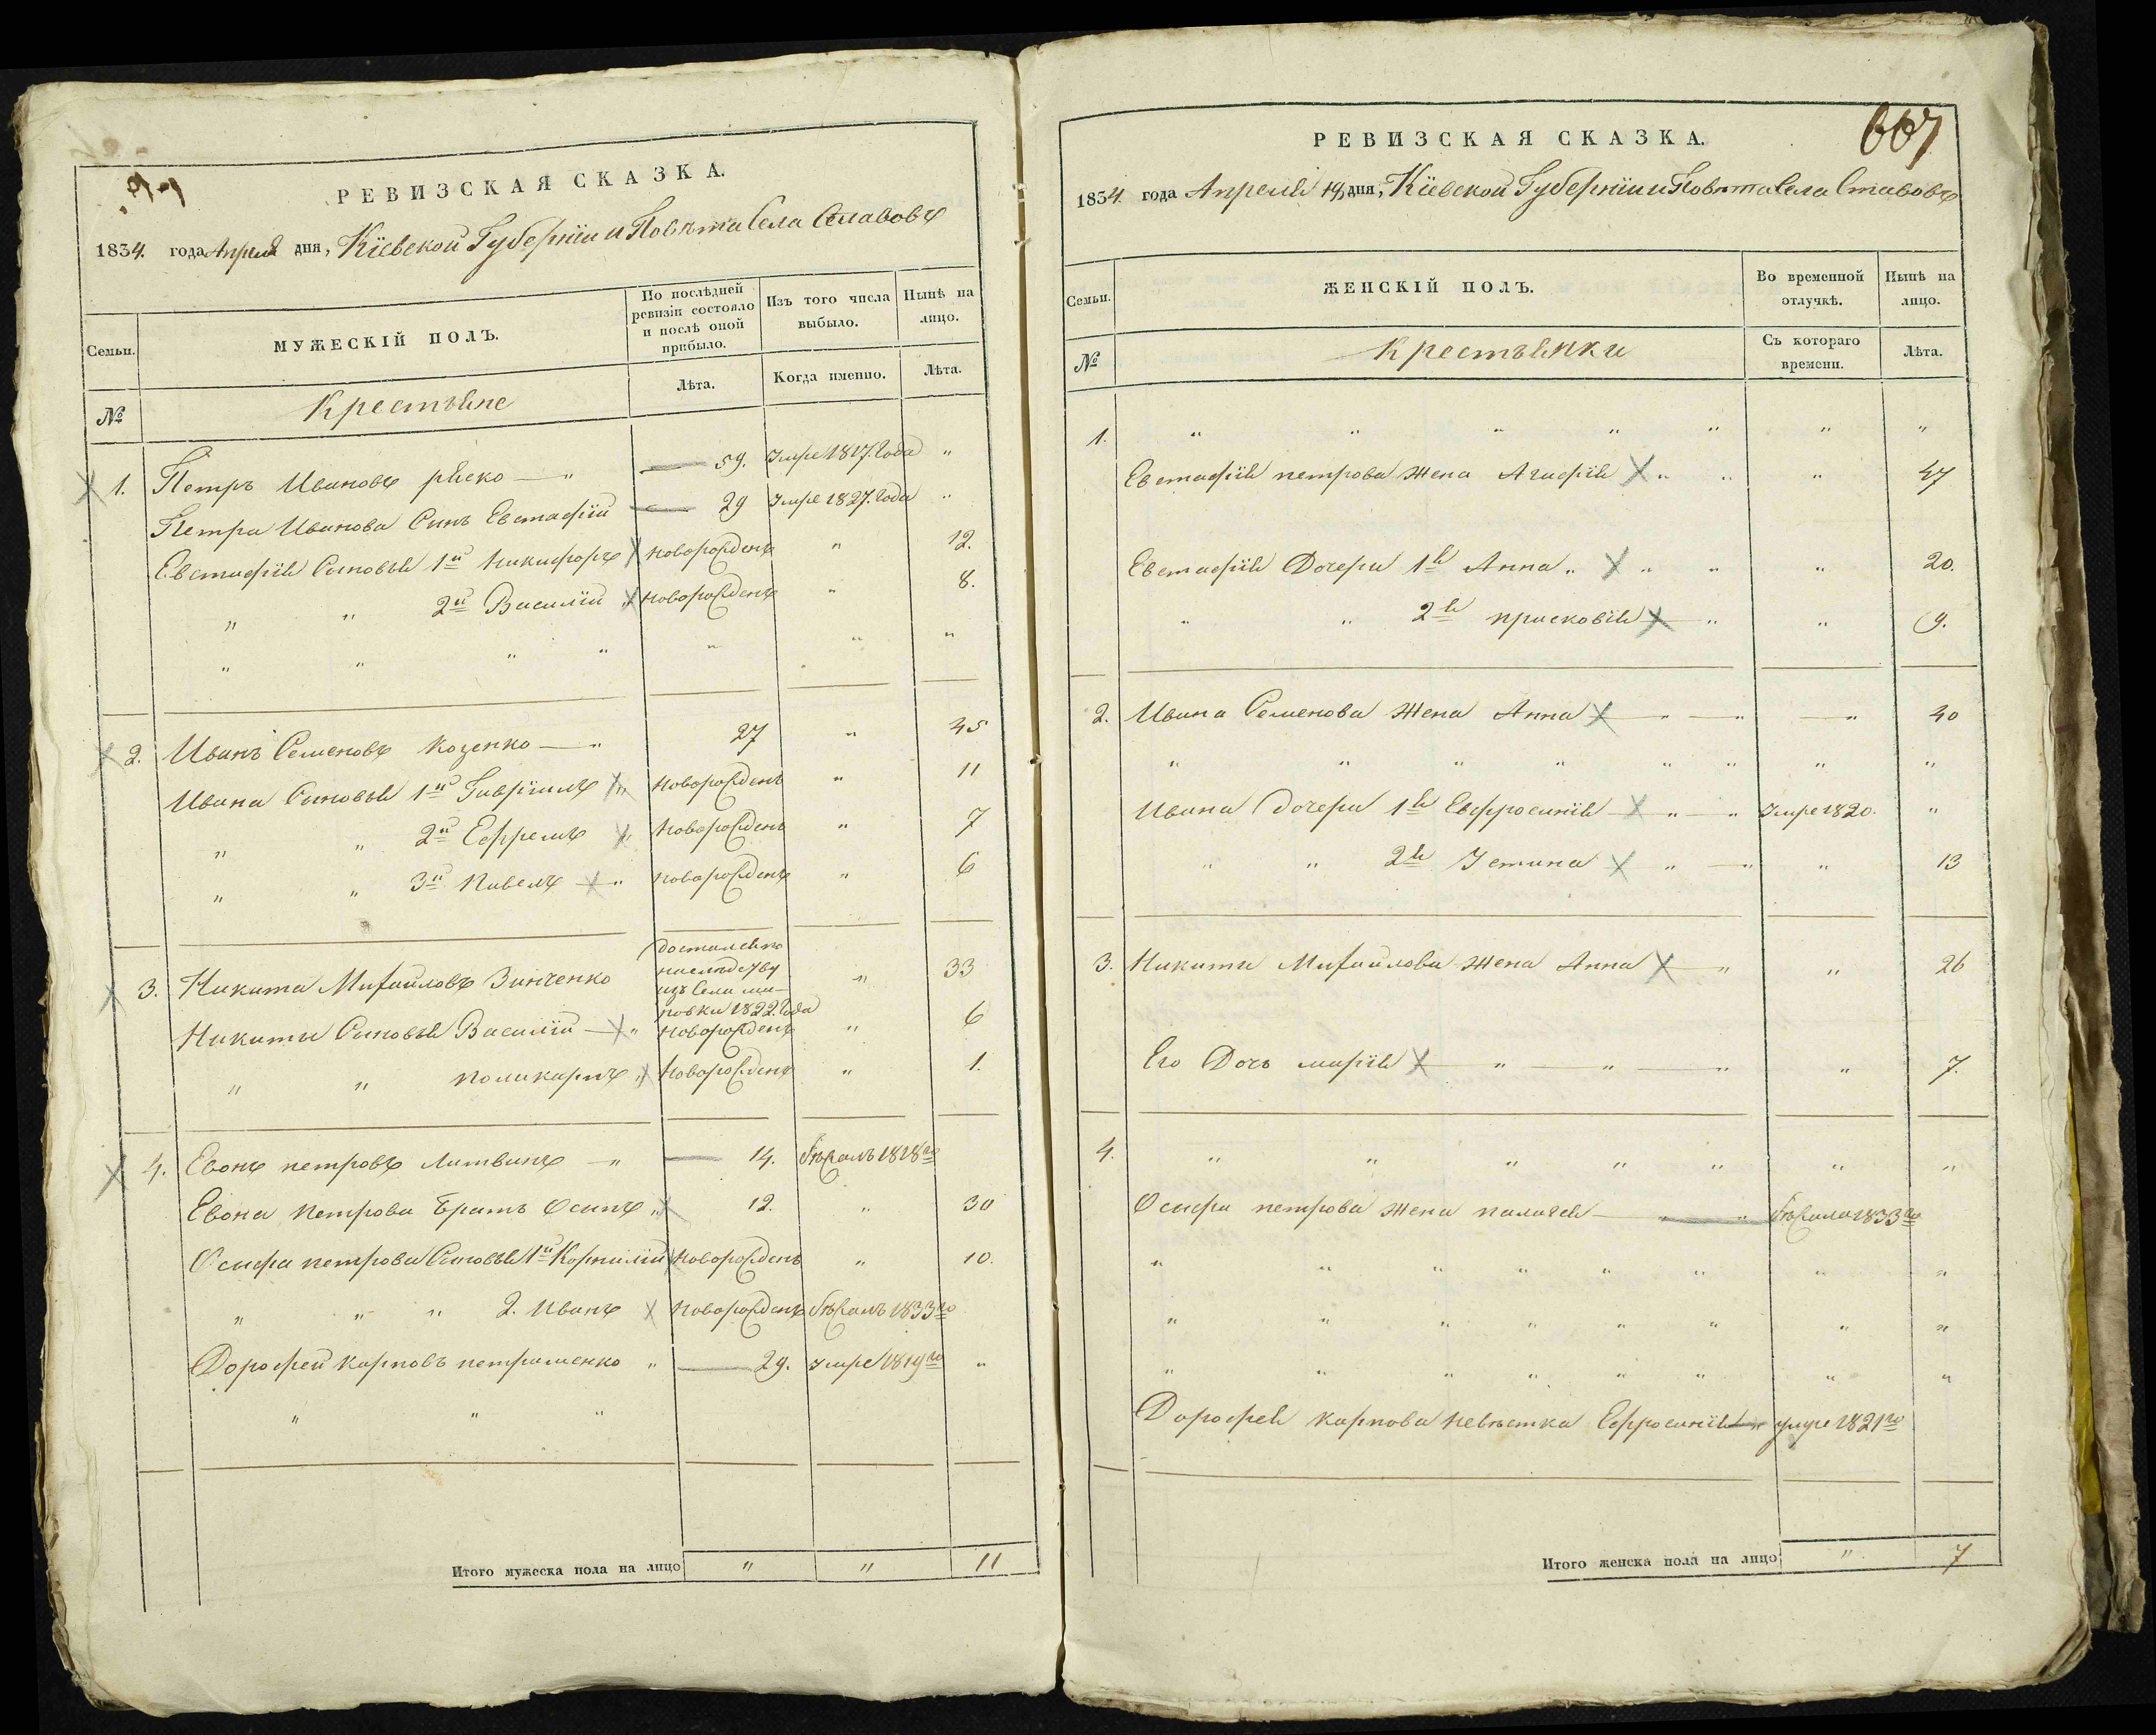 РЕВИЗСКАЯ СКАЗКА.
1834. года Апреля дня, Кіевской Губерніи и Повѣта Села Ставовъ
Семьи.
МУЖЕСКІЙ ПОЛЪ.
По послѣдней ревизіи состояло и послѣ оной прибыло.
Изъ того числа выбыло.
Нынѣ на лицо.
№
Крестьяне
Лѣта.
Когда именно.
Лѣта.
1. Петръ Ивановъ 59. Умре 1817. Года "
Петра Иванова Синъ Евстафій 29 Умре 1827. Года "
Евстафія Синовья 1й Никифоръ новорожденъ " 12.
" " 2й Василій новорожденъ " 8.
" " " " " " "
2. Иванъ Семеновъ Козенко " 27 " 45
Ивана Синовья 1й Гавріилъ " новорожденъ " 11
" " 2й Ефремъ " новорожденъ " 7
" " 3й Павелъ " новорожденъ " 6
3. Никита Михайловъ Зинченко
по наследству изъ Села
1822. Года " 33
Никиты Синовья Василій " новорожденъ " 6
" " поликарпъ " новорожденъ " 1.
4. Евонъ петровъ Литвинъ " 14. бѣжалъ 1818го
Евона петрова Братъ Осипъ " 12. " 30
Осифа петрова Синовья 1й Корнилій новорожденъ " 10.
" " " 2. Иванъ новорожденъ бѣжалъ 1833го
Дорофей карповъ петрашенко " 29. умре 1819го "
" " "
Итого мужеска пола на лицо " " 11
667
РЕВИЗСКАЯ СКАЗКА.
1834. года Апреля дня, Кіевской Губерніи и Повѣта Села Ставовъ
Семьи.
ЖЕНСКІЙ ПОЛЪ.
Во временной отлучкѣ.
Нынѣ на лицо.
№
Крестьянки
Съ котораго времени.
Лѣта.
1. " " " " " " "
Евстафія петрова жена Агафія " " " 47
Евстафія Дочери 1я Анна " " " " 20.
" " 2я присковія " " 9.
2. Ивана Семенова жена Анна " " " 40
" " " " " " " "
Ивана дочери 1я Евфросинія " " Умре 1820. "
" " 2я Устина " " " 13
3. Никиты Михайлова жена Анна " " 26
Его Дочь марія " " " " 7.
4. " " " " " " "
Осифа петрова жена палагея " " бѣжала 1833го
" " " " " " " "
" " " " " " " "
" " " " " " " "
Дорофея карпова невѣстка Ефросинія умре 1821го
Итого женска пола на лицо " 7